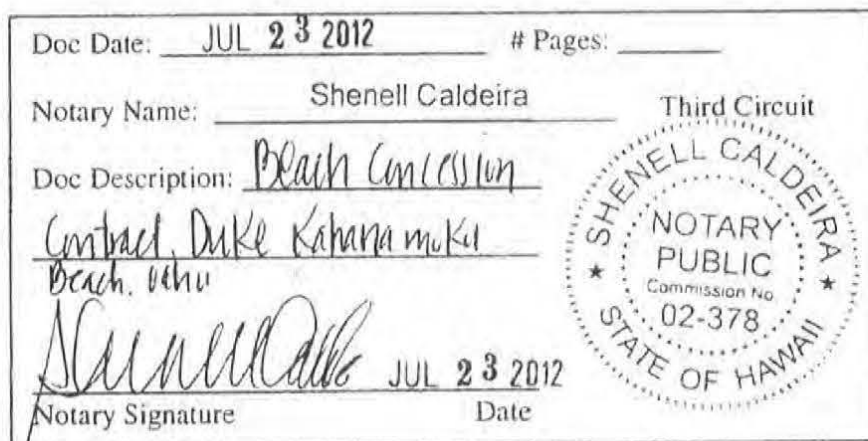 Doc Date: JUL 23 2012 # Pages:
Notary Name: Shenell Caldeira Third Circuit
Doc Description: Beach Concession
Contract, Duke Kahanamoku
Beach, Oahu
JUL 23 2012
Notary Signature Date
SHENELL CALDEIRA
NOTARY
PUBLIC
Commission No.
02-378
★ STATE OF HAWAII ★